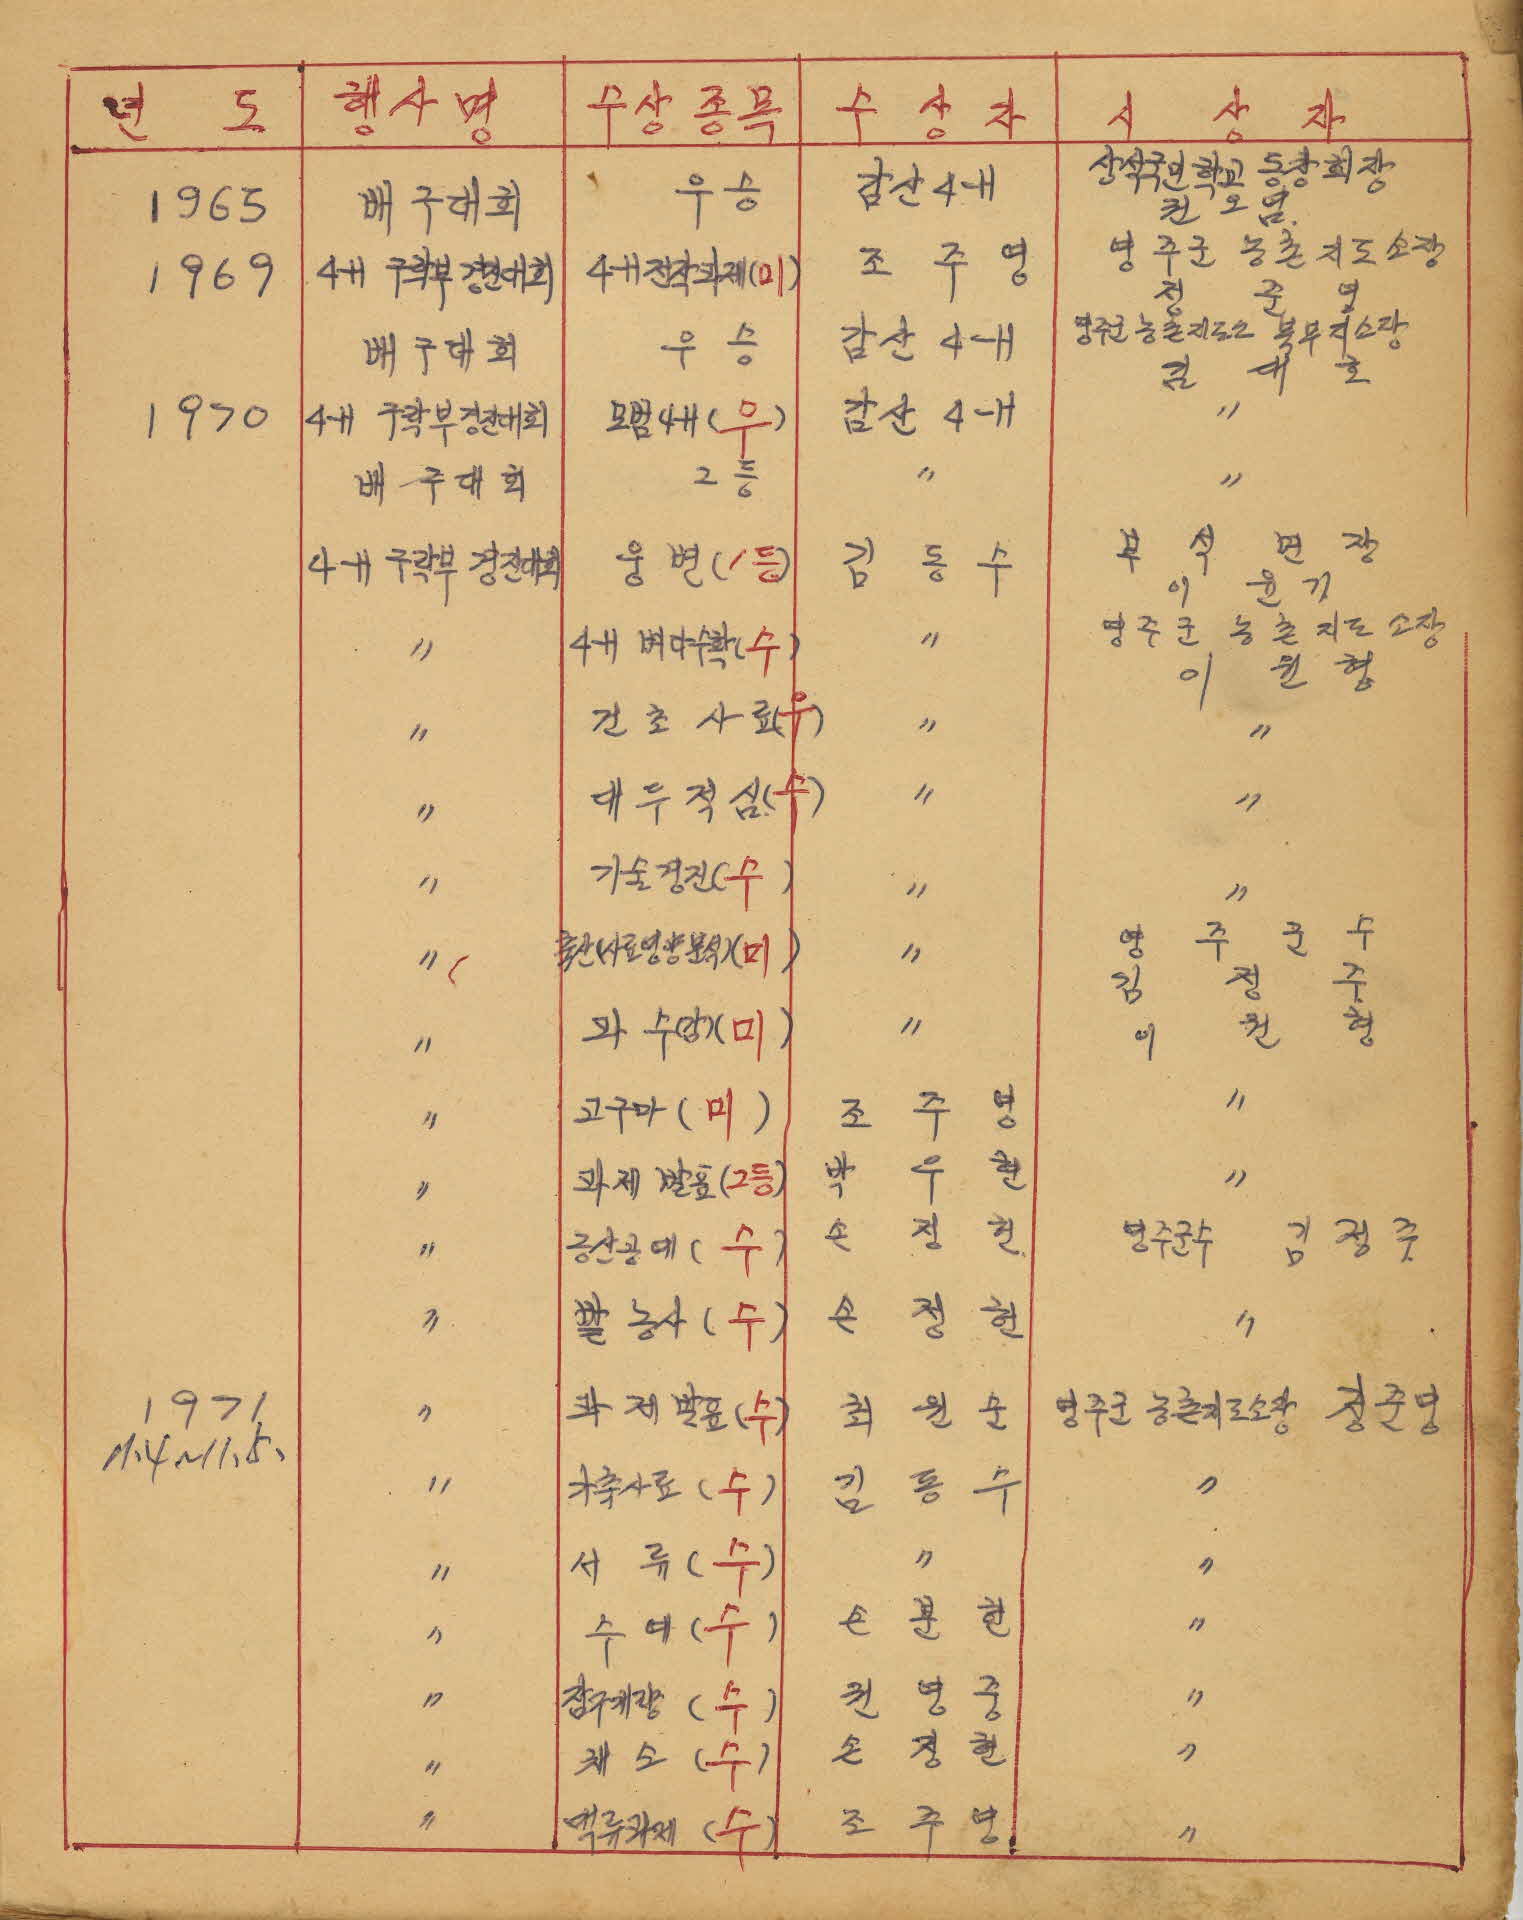 년 도 행사명 수상종목 수 상 자 시 상 자
1965 배구대회 우승 감산4-H 상석국민학교 동창회장
권오염.
1969 4-H 구락부경진대회 4-H전작과제(미) 조주영 영주군 농촌지도소장
정준영
배구대회 우승 감산4-H 영주군농촌지도소 북부지소장
김대호
1970 4-H 구락부경진대회 모범4-H(우) 감산4-H 〃
배구대회 2등 〃 〃
4-H 구락부 경진대회 웅변(1등) 김동수 부석면장
이윤기
〃 4-H 벼다수확(수) 〃 영주군 농촌지도소장
이원형
〃 건초사료(우) 〃 〃
〃 대두적심(수) 〃 〃
〃 기술경진(수) 〃 〃
〃 축산(사료영양분석)(미) 〃 영주군수
김정주
〃 과수(미) 〃 이원형
〃 고구마(미) 조주영 〃
〃 과제발표(2등) 박우현 〃
〃 증산공예(수) 손정헌 영주군수 김정주
〃 밭농사(수) 손정헌 〃
1971 〃 과제발표(수) 최원순 영주군 농촌지도소장 정준영
11.4~11.5.
〃 가축사료(수) 김동수 〃
〃 서류(수) 〃 〃
〃 수예(수) 손분헌 〃
〃 잠구개량(수) 권영중 〃
〃 채소(수) 손정헌 〃
〃 맥류과제(수) 조주영 〃